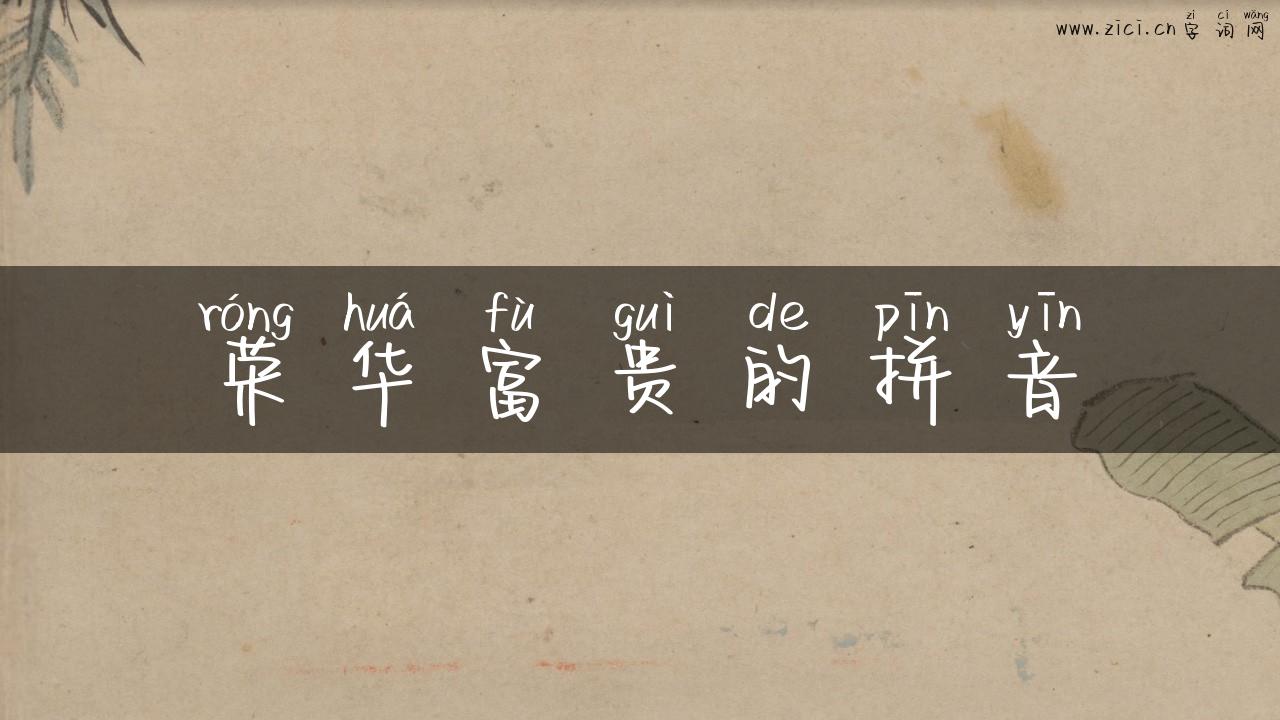 zì cí wǎng
www.zici.cn 字词网
róng huá fù guì de pīn yīn
荣华富贵的拼音